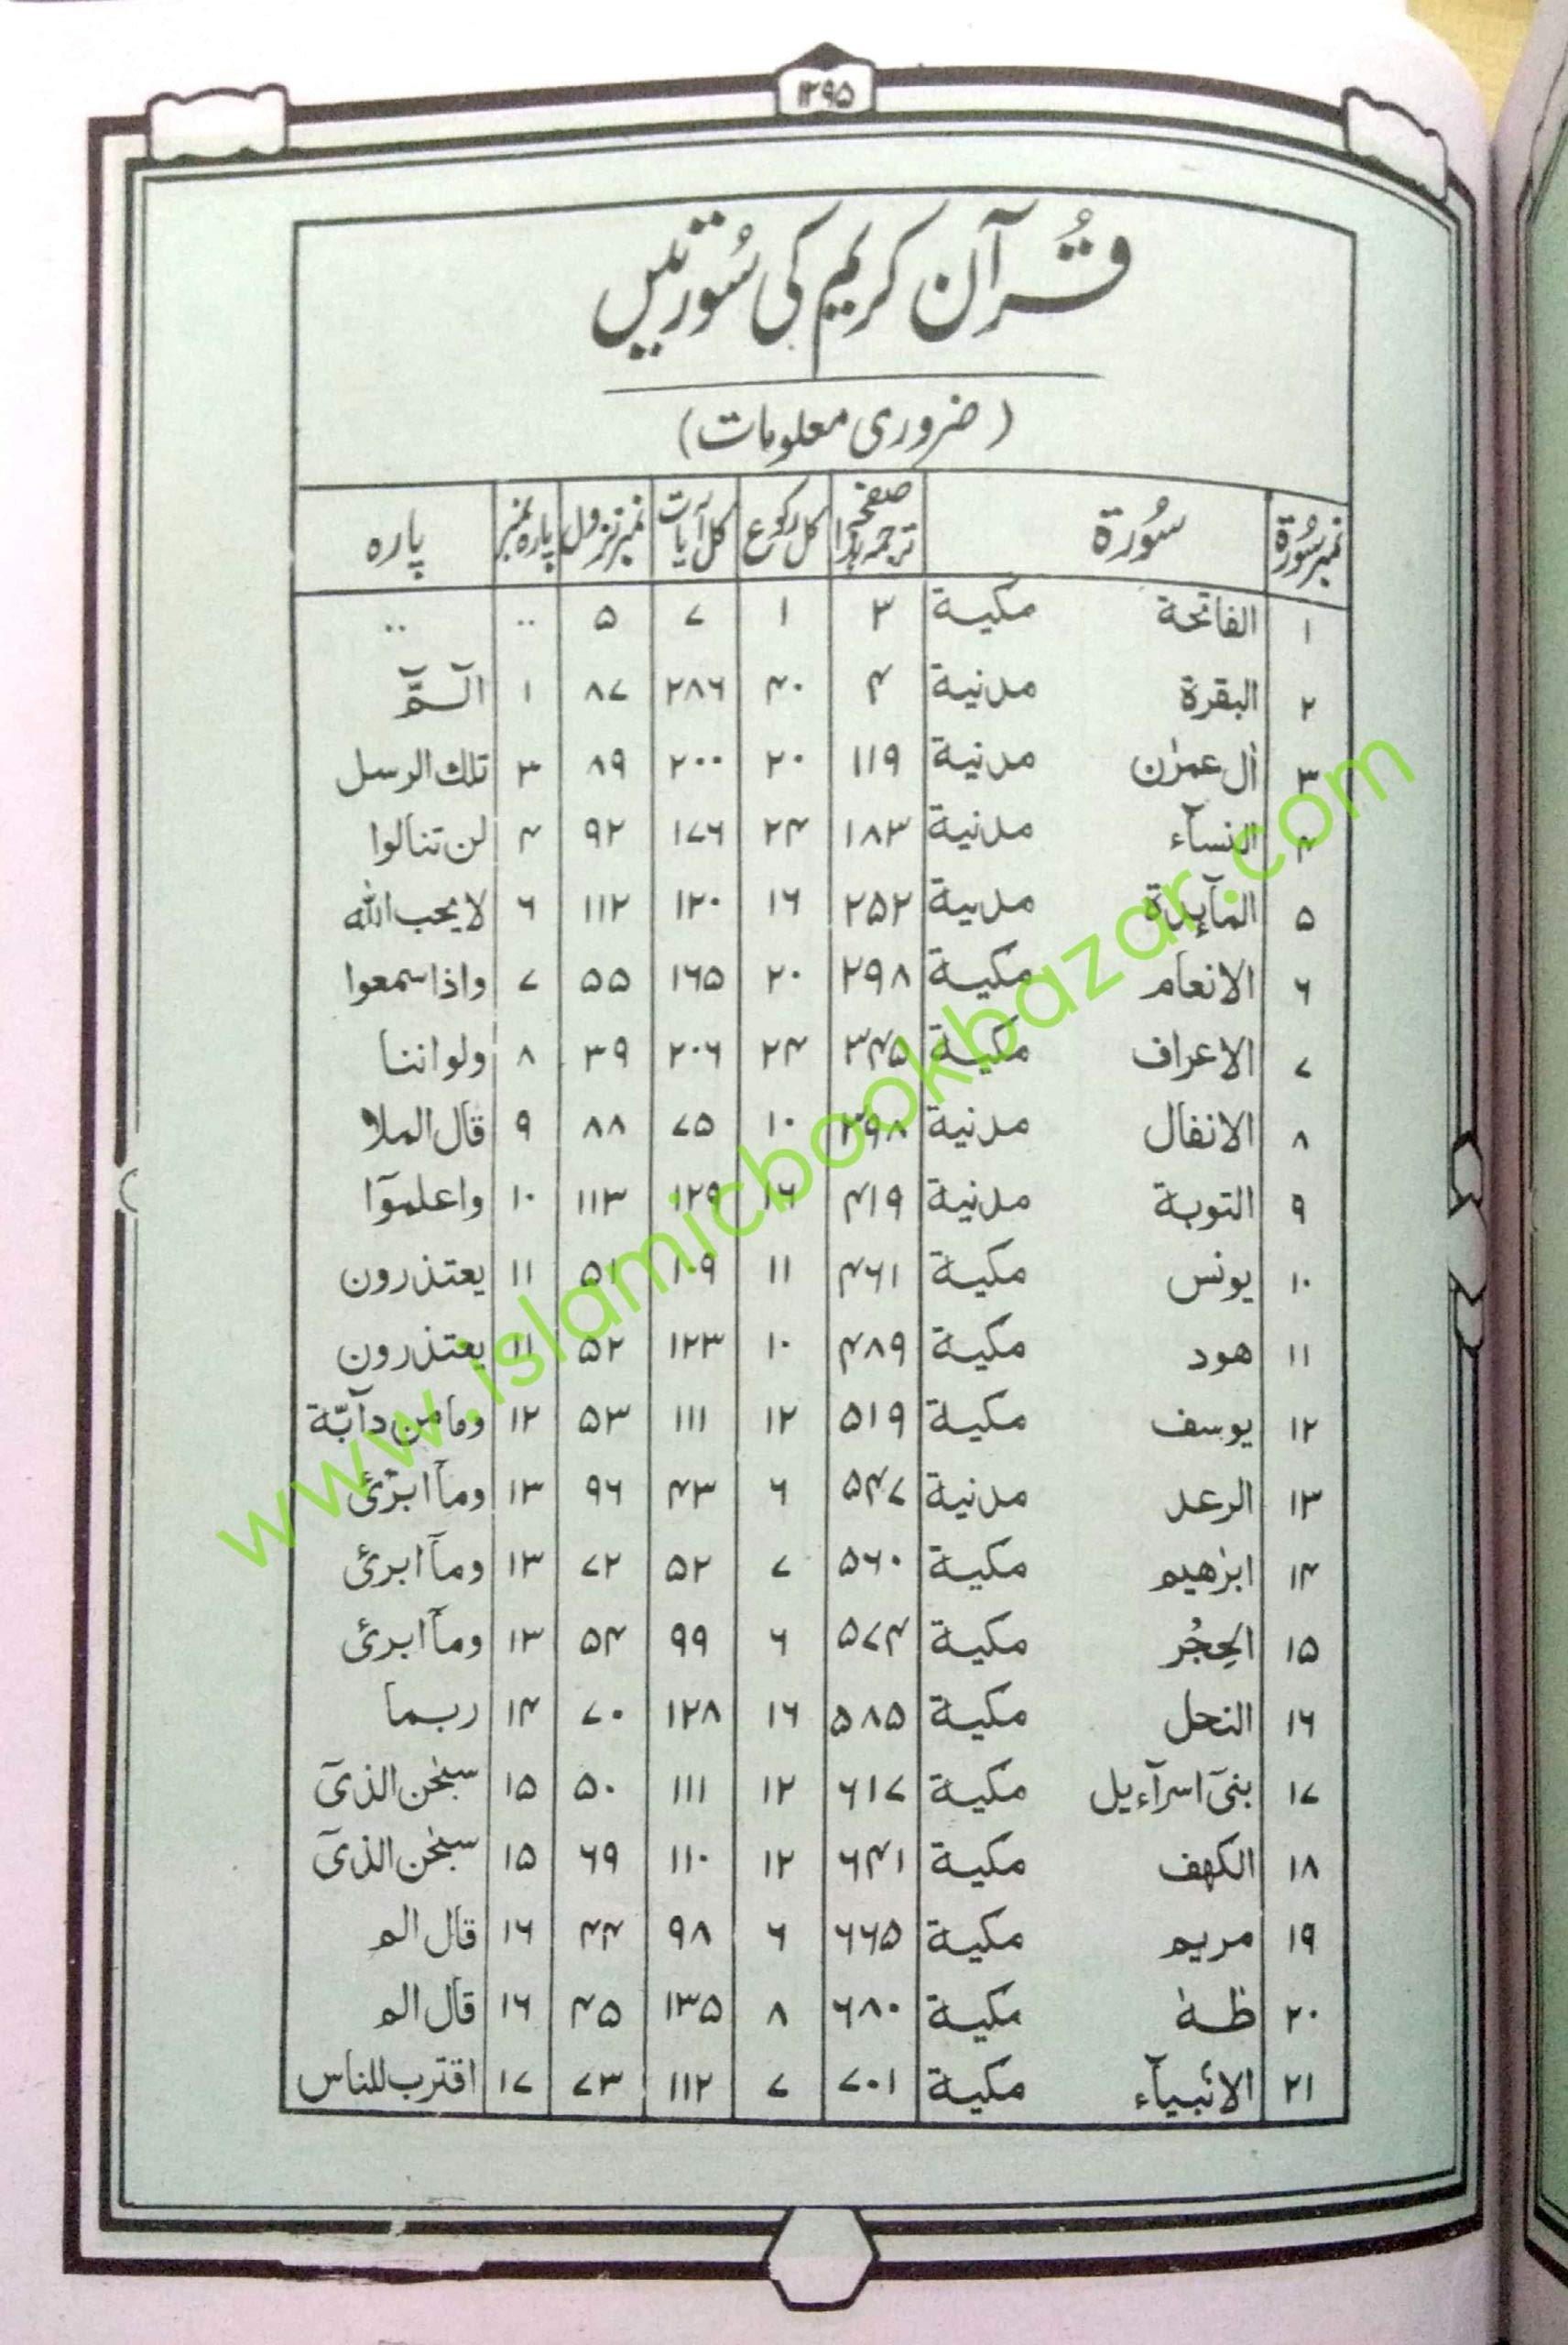 ۱۲۹۵
قُرآن کریم کی سُورتیں
(ضروری معلومات)
نمبر سُورۃ سُورۃ صفحہ ترجمہ ہذا کل رکوع کل آیات نمبر نزول پارہ نمبر پارہ
۱ الفاتحة مكية ۳ ۱ ۷ ۵ .. ..
۲ البقرة مدنية ۴ ۴۰ ۲۸۶ ۸۷ ۱ الٓـمّٓ
۳ اٰل عمرٰن مدنية ۱۱۹ ۲۰ ۲۰۰ ۸۹ ۳ تلك الرسل
۴ النسآء مدنية ۱۸۳ ۲۴ ۱۷۶ ۹۲ ۴ لن تنالوا
۵ المآىِٕدة مدنية ۲۵۲ ۱۶ ۱۲۰ ۱۱۲ ۶ لا يحب الله
۶ الانعام مكية ۲۹۸ ۲۰ ۱۶۵ ۵۵ ۷ واذا سمعوا
۷ الاعراف مكية ۳۴۵ ۲۴ ۲۰۶ ۳۹ ۸ ولو اننا
۸ الانفال مدنية ۳۹۸ ۱۰ ۷۵ ۸۸ ۹ قال الملا
۹ التوبة مدنية ۴۱۹ ۱۶ ۱۲۹ ۱۱۳ ۱۰ واعلموٓا
۱۰ يونس مكية ۴۶۱ ۱۱ ۱۰۹ ۵۱ ۱۱ يعتذرون
۱۱ هود مكية ۴۸۹ ۱۰ ۱۲۳ ۵۲ ۱۱ يعتذرون
۱۲ يوسف مكية ۵۱۹ ۱۲ ۱۱۱ ۵۳ ۱۲ وما من دآبّة
۱۳ الرعد مدنية ۵۴۷ ۶ ۴۳ ۹۶ ۱۳ ومآ ابرّئ
۱۴ ابرٰهيم مكية ۵۶۰ ۷ ۵۲ ۷۲ ۱۳ ومآ ابرئ
۱۵ الحِجْر مكية ۵۷۴ ۶ ۹۹ ۵۴ ۱۳ ومآ ابرئ
۱۶ النحل مكية ۵۸۵ ۱۶ ۱۲۸ ۷۰ ۱۴ ربما
۱۷ بنىٓ اسرآءيل مكية ۶۱۷ ۱۲ ۱۱۱ ۵۰ ۱۵ سبحٰن الذىٓ
۱۸ الكهف مكية ۶۴۱ ۱۲ ۱۱۰ ۶۹ ۱۵ سبحٰن الذىٓ
۱۹ مريم مكية ۶۶۵ ۶ ۹۸ ۴۴ ۱۶ قال الم
۲۰ طٰهٰ مكية ۶۸۰ ۸ ۱۳۵ ۴۵ ۱۶ قال الم
۲۱ الانبيآء مكية ۷۰۱ ۷ ۱۱۲ ۷۳ ۱۷ اقترب للناس
www.islamicbookbazar.com